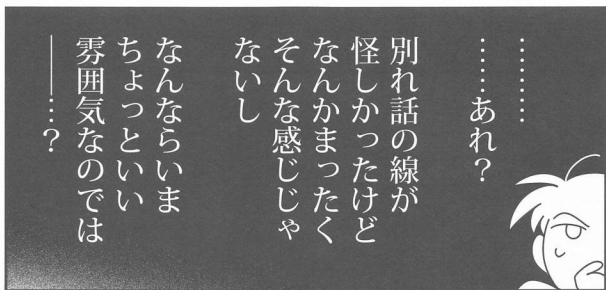 ………
……あれ？
別れ話の線が
怪しかったけど
なんかまったく
そんな感じじゃ
ないし
なんならいま
ちょっといい
雰囲気なのでは
――…？